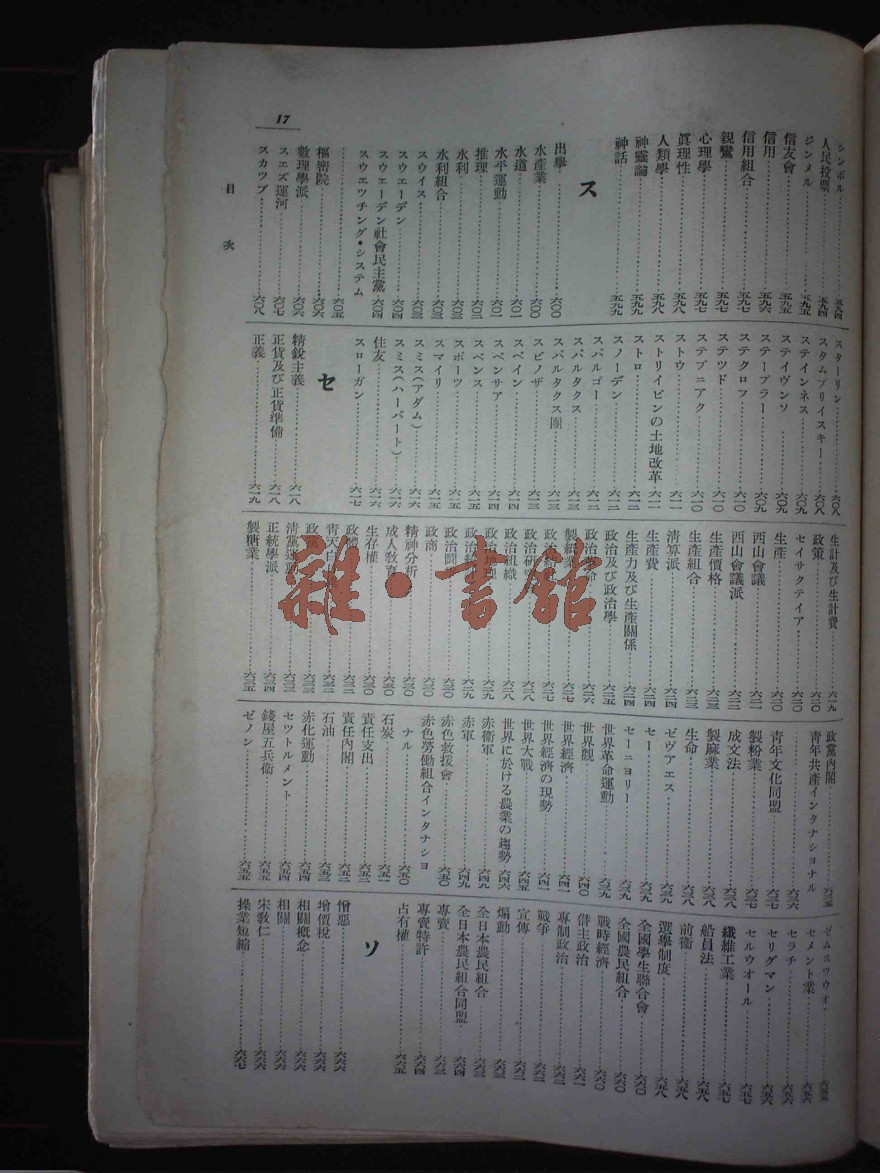 17
目次
シンボル……五九四
人民投票……五九四
ジンメル……五九五
信友會……五九五
信用……五九六
信用組合……五九七
親鸞……五九七
心理學……五九七
眞理性……五九八
人類學……五九八
神靈論……五九九
神話……五九九
ス
出擧……六〇〇
水產業……六〇〇
水道……六〇一
水平運動……六〇一
推理……六〇二
水利……六〇三
水利組合……六〇三
スウイス……六〇三
スウエーデン……六〇四
スウエーデン社會民主黨……六〇四
スウエツチング・システム
……六〇五
樞密院……六〇六
數理學派……六〇六
スエズ運河……六〇七
スカツプ……六〇八
スターリン……六〇八
スタムブリイスキー……六〇八
ステインネス……六〇九
ステイヴンソ……六〇九
ステープラー……六〇九
ステクロフ……六一〇
ステツド……六一〇
ステプニアク……六一〇
ストウ……六一一
ストリイピンの土地改革……六一一
ストロ……六一二
スノーデン……六一二
スパルゴー……六一二
スパルタクス……六一三
スパルタクス團……六一三
スピノザ……六一三
スペイン……六一四
スペンサア……六一四
スペンス……六一五
スポーツ……六一五
スマイリ……六一五
スミス(アダム)……六一六
スミス(ハーバート)……六一六
住友……六一六
スローガン……六一七
セ
精銳主義……六一八
正貨及び正貨準備……六一八
正義……六一九
生計及び生計費……六一九
政策……六二〇
セイサクテイア……六二〇
生產……六二〇
西山會議……六二一
西山會議派……六二二
生產價格……六二三
生產組合……六二三
淸算派……六二四
生產費……六二四
生產力及び生產關係……六二四
政治及び政治學……六二五
政治革命……六二六
製紙業……六二七
政治……六二七
政治硏……六二八
政治組織……六二八
政治地理……六二九
政治……六二九
政治鬪爭……六三〇
政商……六三〇
精神分析……六三〇
成人敎育……六三〇
生存權……六三〇
政體……六三二
靑天白……六三二
政黨……六三三
淸黨運動……六三三
正統學派……六三四
製糖業……六三五
政黨內閣……六三五
靑年共產インタナショナル
……六三六
靑年文化同盟……六三七
製粉業……六三七
成文法……六三八
製麻業……六三八
生命……六三八
ゼヴアエス……六三九
セー……六三九
セーニヨリー……六三九
世界革命運動……六三九
世界觀……六四〇
世界經濟……六四一
世界經濟の現勢……六四一
世界大戰……六四五
世界に於ける農業の趨勢……六四六
赤衞軍……六四九
赤軍……六四九
赤色救援會……六五〇
赤色勞働組合インタナショ
ナル……六五〇
石炭……六五一
責任支出……六五二
責任內閣……六五二
石油……六五三
赤化運動……六五四
セツトルメント……六五四
錢屋五兵衞……六五五
ゼノン……六五五
ゼムスツウオ……六五五
セメント業……六五六
セラチ……六五六
セリグマン……六五六
セルウオール……六五七
纖維工業……六五七
船員法……六五八
前衞……六五八
選擧制度……六五八
全國學生聯合會……六六〇
全國農民組合……六六〇
戰時經濟……六六〇
僭主政治……六六一
專制政治……六六二
戰爭……六六二
宣傳……六六二
煽動……六六三
全日本農民組合……六六三
全日本農民組合同盟……六六四
專賣……六六三
專賣特許……六六四
占有權……六六五
ソ
憎惡……六六六
增價稅……六六六
相關槪念……六六六
相關……六六六
宋敎仁……六六六
操業短縮……六六七
雜・書館